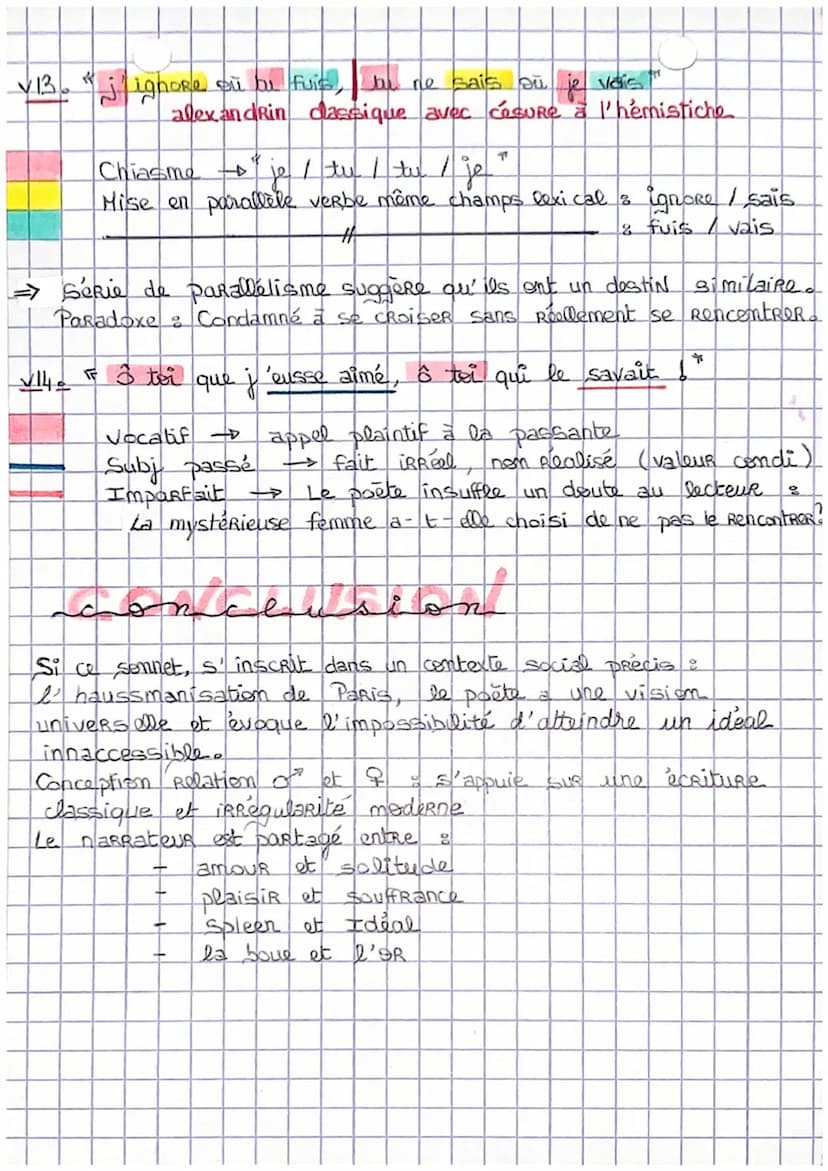 v13. "j'ignore où tu fuis, tu ne sais où je vais"
alexandrin classique avec césure à l'hémistiche
Chiasme → "je / tu / tu / je"
Mise en parallèle verbe même champs lexical : ignore / sais
—— // —— : fuis / vais
⇒ Série de parallélisme suggère qu'ils ont un destin similaire.
Paradoxe : Condamné à se croiser sans réellement se rencontrer.
v14. "ô toi que j'eusse aimé, ô toi qui le savait !"
Vocatif → appel plaintif à la passante
Subj passé → fait irréel, non réalisé (valeur condi)
Imparfait → Le poète insuffle un doute au lecteur :
La mystérieuse femme a-t-elle choisi de ne pas le rencontrer?
CONCLUSION
conclusion
Si ce sonnet, s'inscrit dans un contexte social précis :
l'haussmanisation de Paris, le poète a une vision
universelle et évoque l'impossibilité d'atteindre un idéal
innaccessible.
Conception relation ♂ et ♀ : s'appuie sur une écriture
classique et irrégularité moderne
Le narrateur est partagé entre :
- amour et solitude
- plaisir et souffrance
- Spleen et Idéal
- la boue et l'or